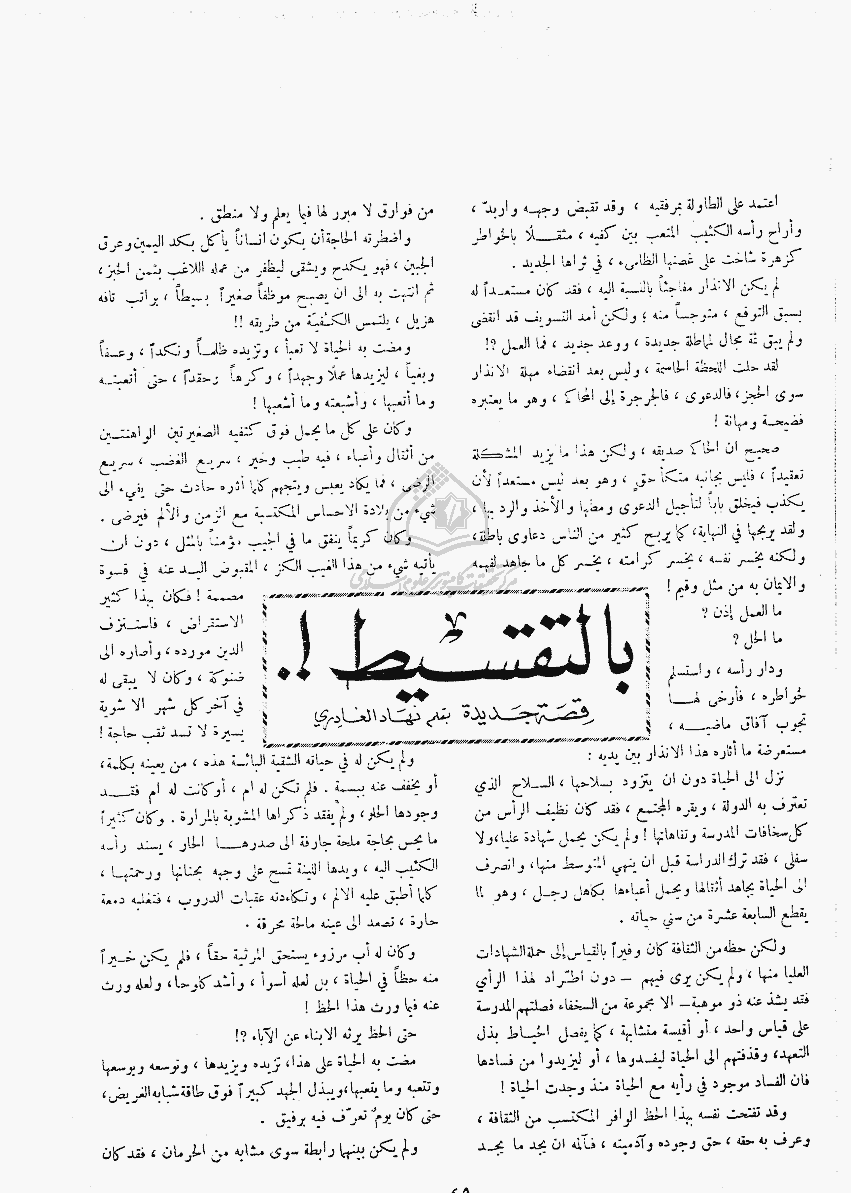 بالتقسيط !.
قصة جديدة بقلم نهاد الغادري
اعتمد على الطاولة بمرفقيه ، وقد تقبض وجهه واربدّ ،
وأراح رأسه الكئيب المتعب بين كفيه ، مثقـلًا بالخواطر
كزهرة شاخت على غصنها الظامىء ، في ثراها الجديد .
لم يكن الانذار مفاجئاً بالنسبة اليه ، فقد كان مستعـداً له
بسبق التوقع ، متوجساً منه ؛ ولكن أمد التسويف قد انقضى
ولم يبق ثمة مجال لمماطلة جديدة ، ووعد جديد ، فما العمل ?!
لقد حلت اللحظة الحاسمة ، وليس بعد انقضاء مهلة الانذار
سوى الحجز ، فالدعوى ، فالجرجرة إلى المحاكم ، وهو ما يعتبره
فضيحة ومهانة !
صحيح ان الحاكم صديقه ، ولكن هذا ما يزيد المشكلة
تعقيداً ، فليس بجانبه متكأ حق ، وهو بعد ليس مستعداً لأن
يكذب فيخلق باباً لتأجيل الدعوى ومطها والأخذ والرد بها ،
ولقد يربحها في النهاية، كما يربح كثير من الناس دعاوى باطلة ،
ولكنه يخسر نفسه ، يخسر كرامته ، يخسر كل ما جاهد لفهمه
والايمان به من مثل وقيم !
ما العمل إذن ?
ما الحل ?
ودار رأسه ، واستسلم
لخواطره ، فأرخى لهـا
تجوب آفاق ماضيـه ،
مستعرضة ما أثاره هذا الانذار بين يديه :
نزل الى الحياة دون ان يتزود بسلاحها ، السـلاح الذي
تعترف به الدولة ، ويقره المجتمع ، فقد كان نظيف الرأس من
كل سخافات المدرسة وتفاهاتها ! ولم يكن يحمل شهادة عليا، ولا
سفلى ، فقد ترك الدراسة قبل ان ينهي المتوسط منها، وانصرف
الى الحياة يجاهد أثقالها ويحمل أعباءها بكاهل رجـل ، وهو لما
يقطع السابعة عشرة من سني حياته .
ولكن حظه من الثقافة كان وفيراً بالقياس إلى حملة الشهادات
العليا منها ، ولم يكن يرى فيهم – دون اطّراد لهذا الرأي
فقد يشذ عنه ذو موهبة – الا مجموعة من السخفاء فصلتهم المدرسة
على قياس واحد ، أو أقيسة متشابهة ، كما يفصل الخيـاط بذل
التعهد، وقذفتهم الى الحياة ليفسدوها ، أو ليزيدوا من فسادها
فان الفساد موجود في رأيه مع الحياة منذ وجدت الحياة !
وقد تفتحت نفسه بهذا الحظ الوافر المكتسب من الثقافة ،
وعرف به حقه ، حق وجوده وآدميته ، فـآلمه ان يجد ما يجـد
من فوارق لا مبرر لها فيما يعلم ولا منطق .
واضطرته الحاجة أن يكون انساناً يأكل بكد اليمين وعرق
الجبين ، فهو يكدح ويشقى ليظفر من عمله اللاغب بثمن الخبز ،
ثم انتهت به الى ان يصبح موظفاً صغيراً بسيطاً ، براتب تافه
هزيل ، يلتمس الكفيّة من طريقه !!
ومضت به الحياة لا تعبأ ، وتزيده ظلمـاً ونكداً ، وعسفاً
وبغياً ، ليزيدها عملًا وجهداً ، وكرهاً وحقداً ، حتى أتعبتـه
وما أتعبها ، وأشبعته وما أشبعها !
وكان على كل ما يحمل فوق كتفيه الصغيرتين الواهنتـين
من أثقال وأعباء ، فيه طيب وخير ، سريع الغضب ، سريع
الرضى ، فما يكاد يعبس ويتجهم كلما أثره حادث حتى يفيء الى
شيء من بلادة الاحساس المكتسبة مع الزمن والألم فيرضى .
وكان كريماً ينفق ما في الجيب مؤمناً بالمثل ، دون ان
يأتيه شيء من هذا الغيب الكز ، المقبوض اليـد عنه في قسوة
مصممة ! فكان بهذا كثير
الاستقراض ، فاستـنزف
الدين مورده ، وأصاره الى
ضنوكة ، وكان لا يبقى له
في آخر كل شهر الا شوية
يسيرة لا تسد ثقب حاجة !
ولم يكن له في حياته الشقية البائسة هذه ، من يعينه بكلمة،
أو يخفف عنه ببسمة . فلم تكن له ام ، أو كانت له ام فقـد
وجودها الحلو ، ولم يفقد ذكراها المشوبة بالمرارة . وكان كثيراً
ما يحس بحاجة ملحة جارفة الى صدرهـا الحار ، يسند رأسه
الكئيب اليه ، ويدها اللينة تمسح على وجهه بحنانها ورحمتها ،
كلما أطبق عليه الالم ، وتكاءدته عقبات الدروب ، فتغلبه دمعة
حارة ، تصعد الى عينه مالحة محرقة .
وكان له أب مرزوء يستحق المرثية حقاً ، فلم يكن خـيراً
منه حظاً في الحياة ، بل لعله أسوأ ، وأشد كلوحا، ولعله ورث
عنه فيما ورث هذا الحظ !
حتى الحظ يرثه الابناء عن الآباء ?!
مضت به الحياة على هذا، تزيده ويزيدها ، وتوسعه ويوسعها
وتتعبه وما يتعبها، ويبذل الجهد كبيراً فوق طاقة شبابه الغريض،
حتى كان يومٌ تعرّف فيه برفيق .
ولم يكن بينهما رابطة سوى مشابه من الحرمان ، فقد كان
مركز تحقيقات كامپيوتري علوم اسلامي
٤٥